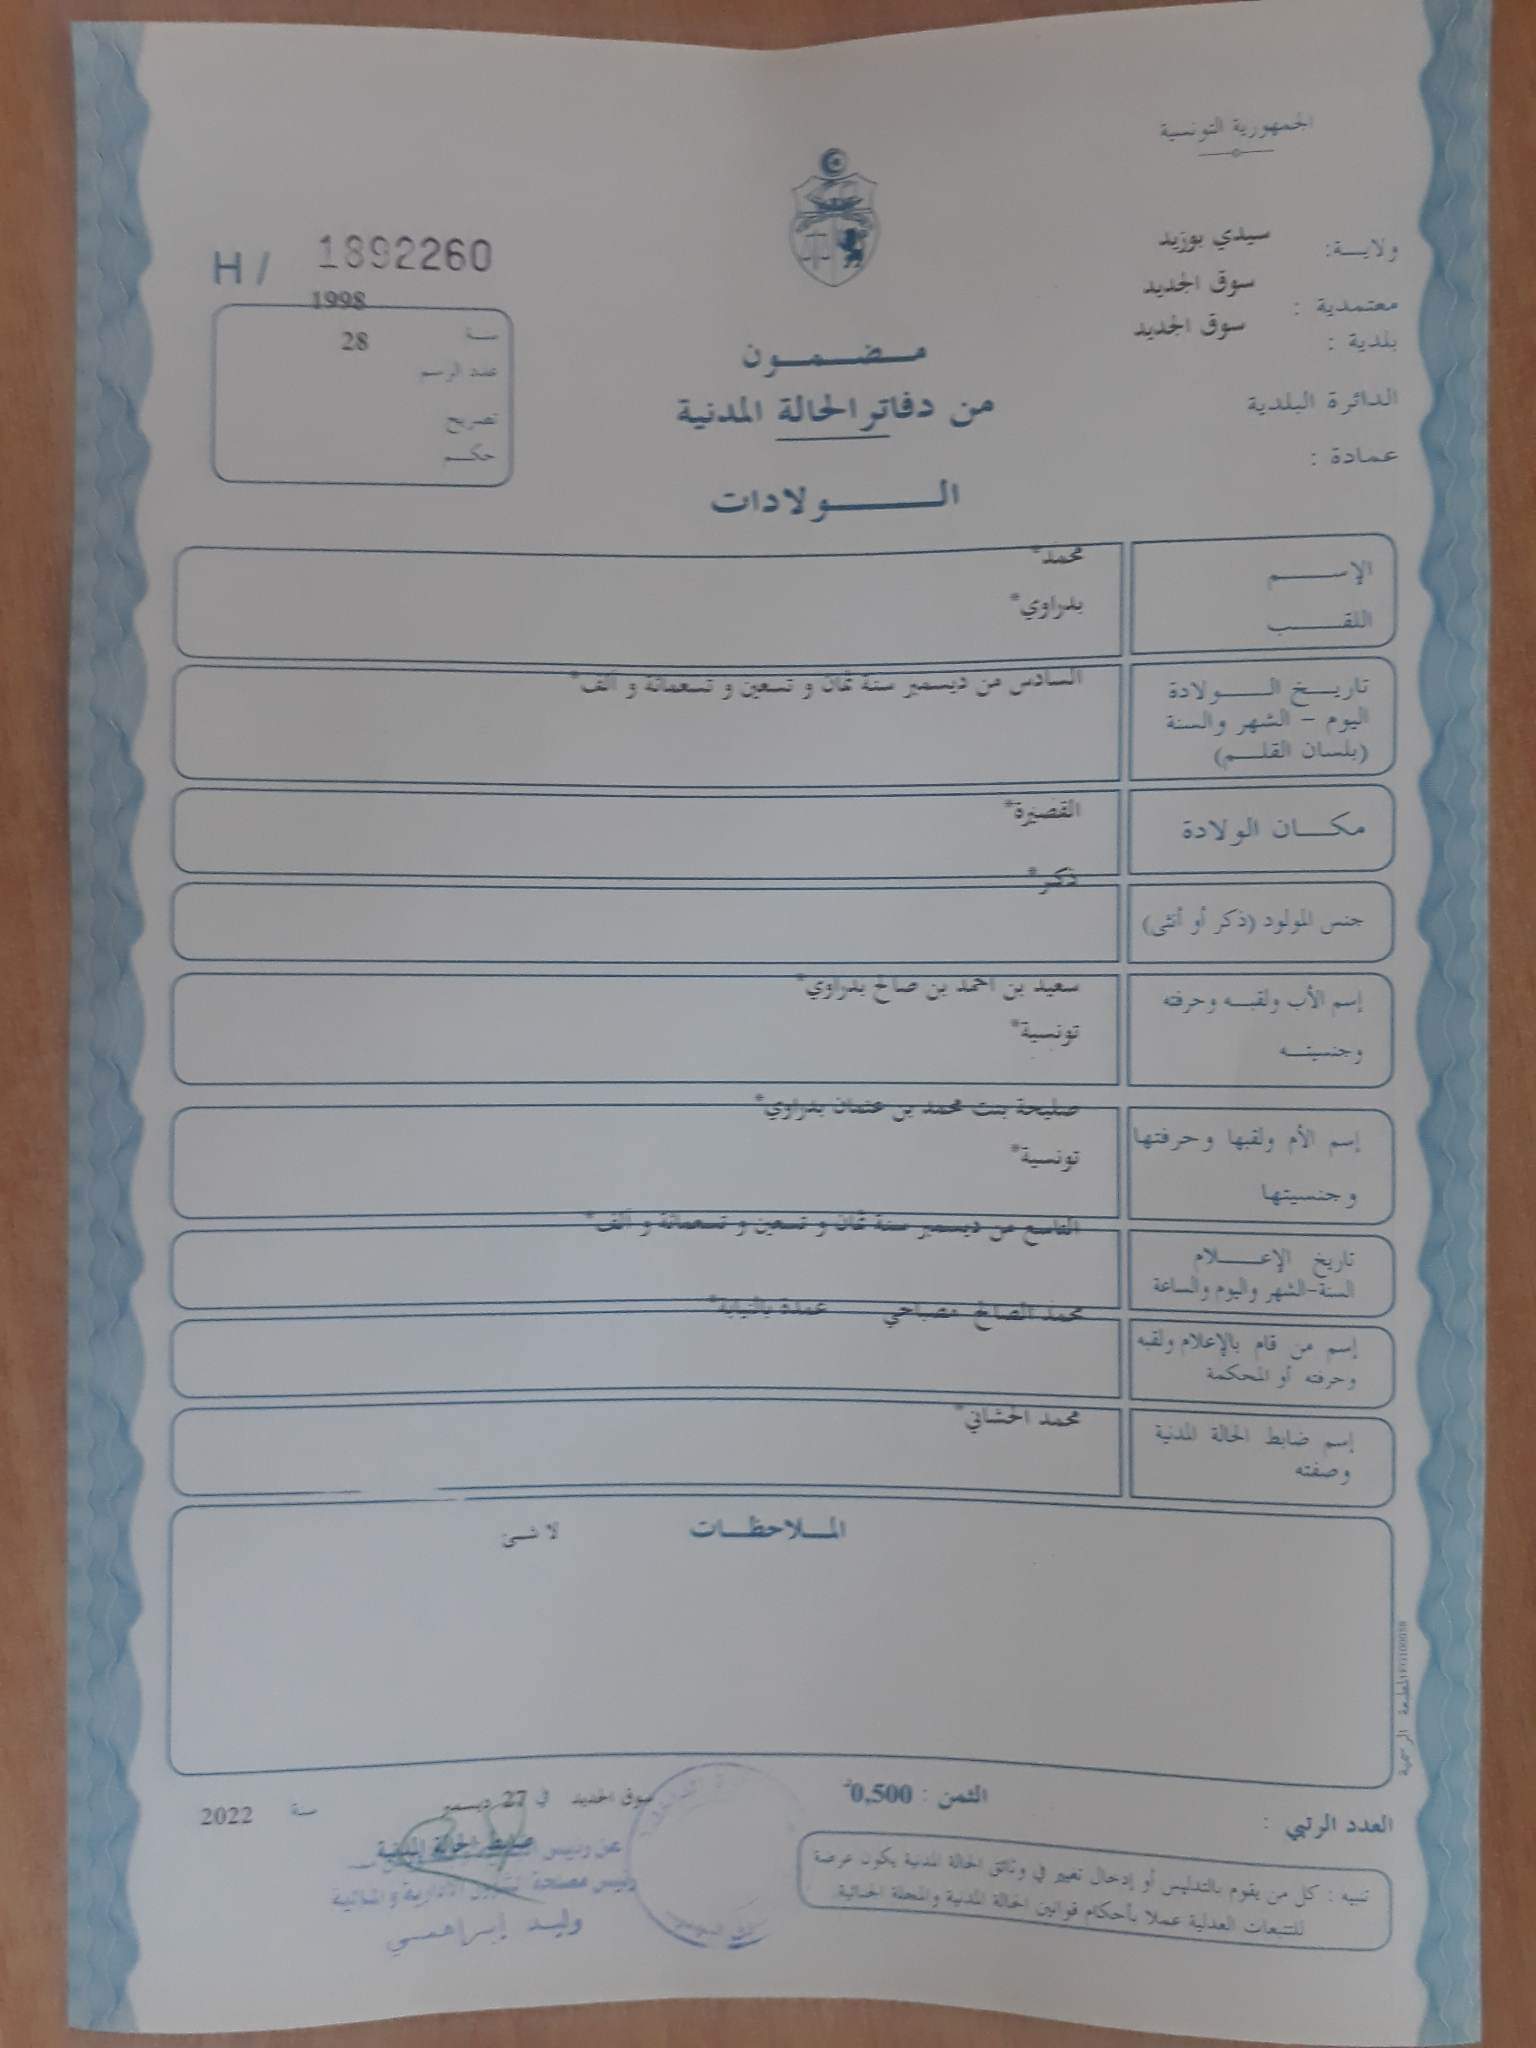 الجمهورية التونسية
ولايـــة: سيدي بوزيد
معتمدية : سوق الجديد
بلدية : سوق الجديد
الدائرة البلدية
عمادة :
H / 1892260
1998
سنة 28
عدد الرسم
تصريح
حكم
مـضـمـون
من دفاتر الحالة المدنية
الـــولادات
الإســـم محمد*
اللقـــب بدراوي*
تاريـخ الـــولادة السادس من ديسمبر سنة ثمان و تسعين و تسعمائة و ألف*
اليوم - الشهر والسنة
(بلسان القلـم)
مكـــان الولادة القصيرة*
جنس المولود (ذكر أو أنثى) ذكر*
إسم الأب ولقبـه وحرفته سعيد بن احمد بن صالح بدراوي*
وجنسيتـه تونسية*
إسم الأم ولقبها وحرفتها صليحة بنت محمد بن عثمان بدراوي*
وجنسيتها تونسية*
تاريخ الإعـــلام التاسع من ديسمبر سنة ثمان و تسعين و تسعمائة و ألف*
السنة-الشهر واليوم والساعة
إسم من قام بالإعلام ولقبه محمد الصالح مصباحي عمدة بالنيابة*
وحرفته أو المحكمة
إسم ضابط الحالة المدنية محمد الحشاني*
وصفته
المـلاحظـات لا شئ
المطبعة الرسمية
الثمن : 0,500د
سوق الجديد في 27 ديسمبر سنة 2022
العدد الرتبي :
ضابط الحالة المدنية
عن رئيس
رئيس مصلحة الشؤون الادارية والمالية
وليد إبراهمي
تنبيه : كل من يقوم بالتدليس أو إدخال تغيير في وثائق الحالة المدنية يكون عرضة
للتتبعات العدلية عملا بأحكام قوانين الحالة المدنية والمجلة الجنائية